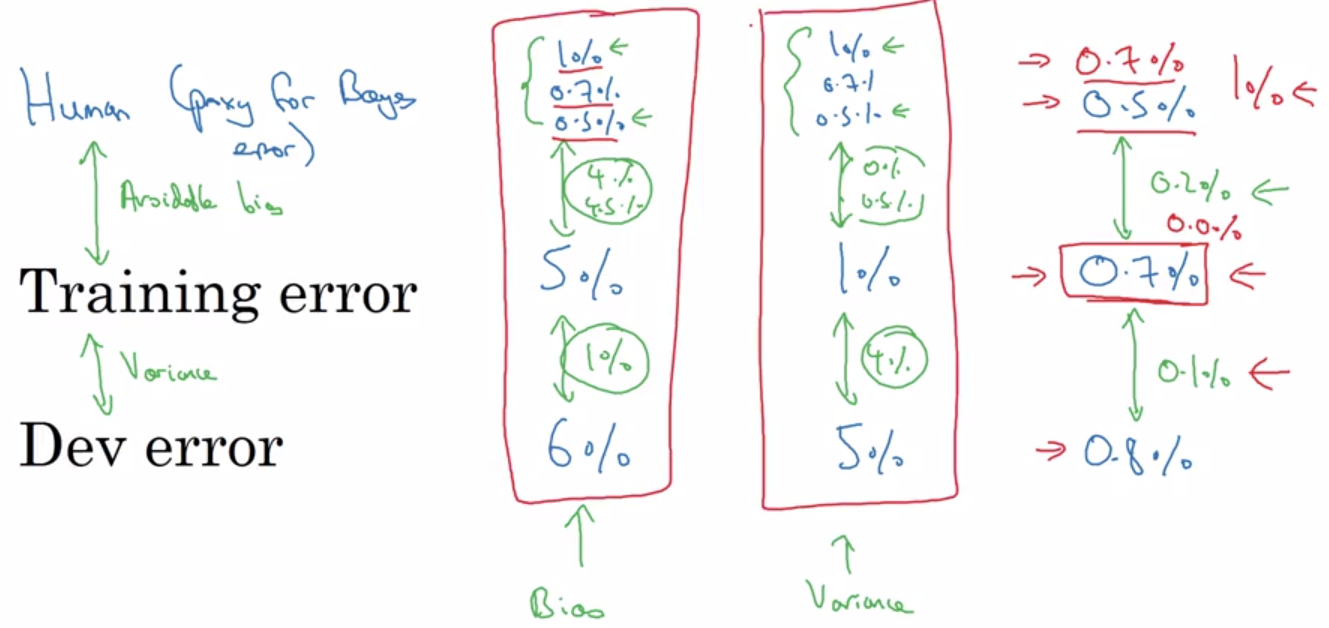 Human (proxy for Bayes error)
Avoidable bias
Training error
Variance
Dev error
1%
0.7%
0.5%
4%
4.5%
5%
1%
6%
Bias
1%
0.7%
0.5%
0%
0.5%
1%
4%
5%
Variance
0.7%
0.5%
1%
0.2%
0.0%
0.7%
0.1%
0.8%